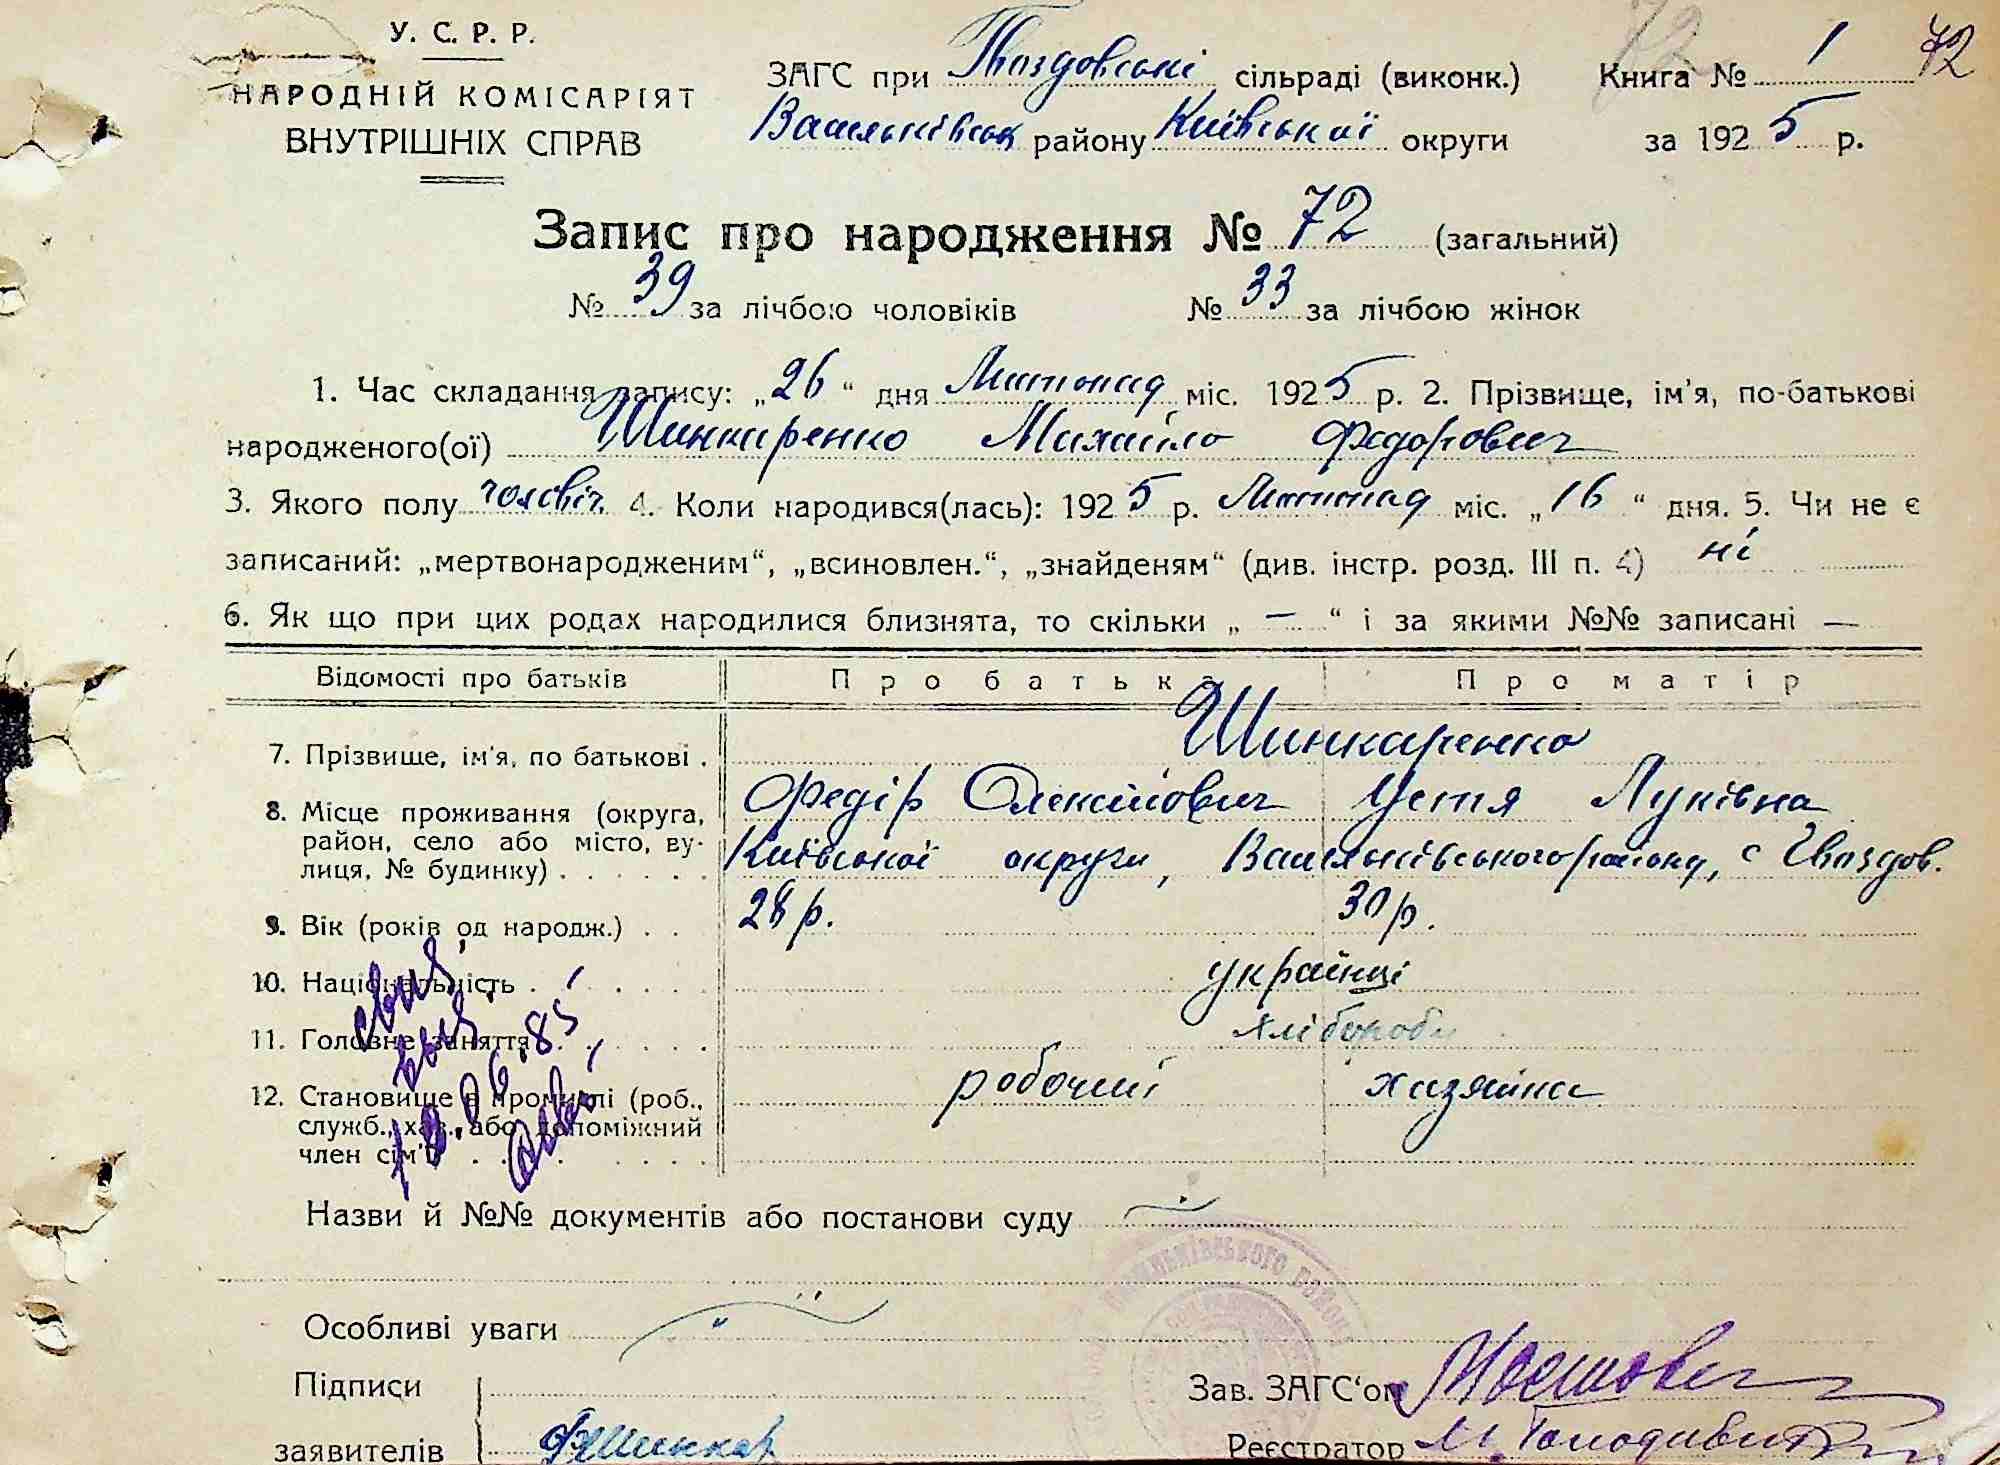 У. С. Р. Р.
НАРОДНІЙ КОМІСАРІЯТ
ВНУТРІШНІХ СПРАВ
ЗАГС при Гвоздовські сільраді (виконк.) Книга № 1 72
Васильківськ району Київської округи за 1925 р.
Запис про народження № 72 (загальний)
№ 39 за лічбою чоловіків № 33 за лічбою жінок
1. Час складання запису: „26“ дня Листопад міс. 1925 р. 2. Прізвище, ім'я, по-батькові
народженого(ої) Шинкаренко Михайло Федорович
3. Якого полу чоловіч. 4. Коли народився(лась): 1925 р. Листопад міс. „16“ дня. 5. Чи не є
записаний: „мертвонародженим“, „всиновлен.“, „знайденям“ (див. інстр. розд. III п. 4) ні
6. Як що при цих родах народилися близнята, то скільки „ — “ і за якими №№ записані —
Відомості про батьків Про батька Про матір
7. Прізвище, ім'я, по батькові . Шинкаренко
Федір Олексійович Устя Луківна
8. Місце проживання (округа, район, село або місто, вулиця, № будинку) Київської округи, Васильківського району, с Гвоздов.
9. Вік (років од народж.) 28 р. 30 р.
10. Національність українці
11. Головне заняття хлібороби
12. Становище в промислі (роб., служб., хаз., або допоміжний член сім'ї) робочий хазяйка
10.06.85
Назви й №№ документів або постанови суду
Особливі уваги
Підписи
заявителів Ф Шинкар
Зав. ЗАГС'ом
Реєстратор